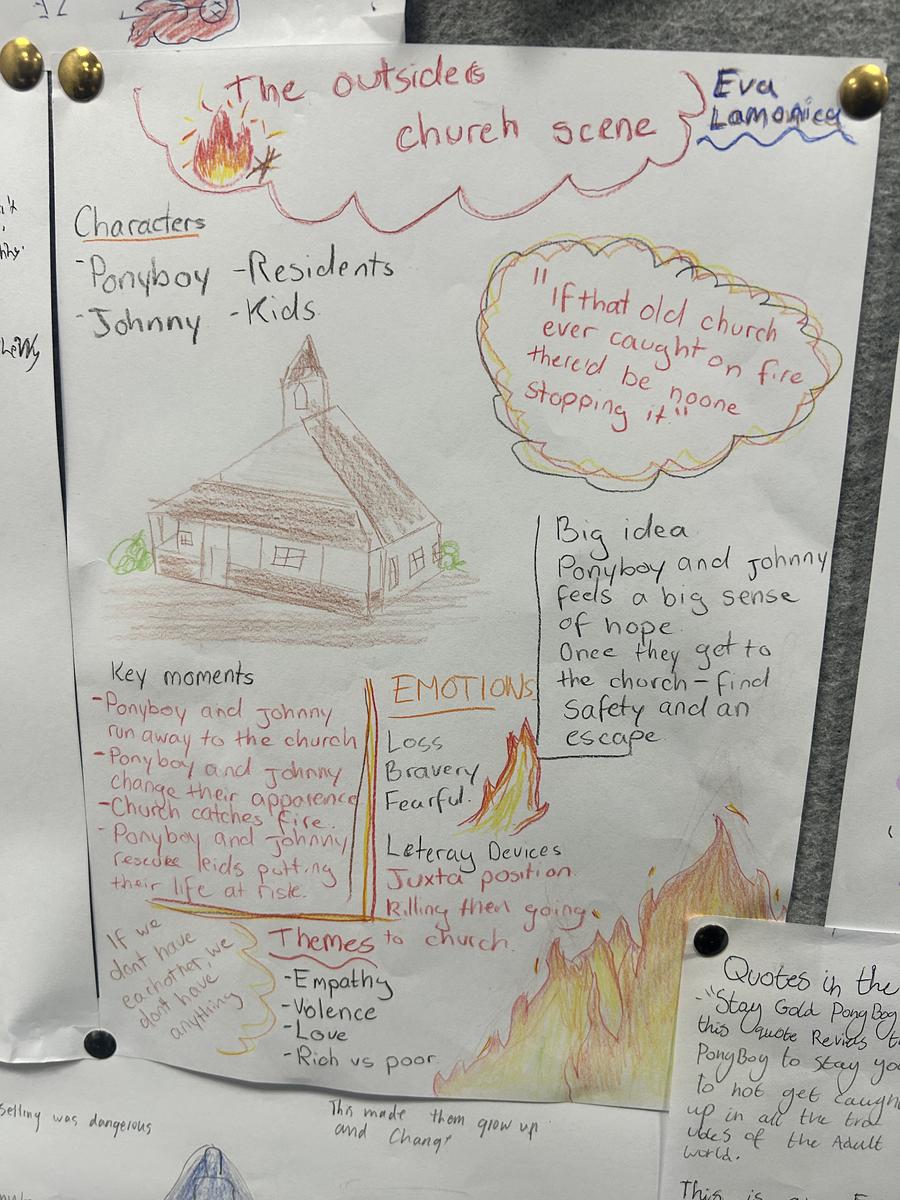 The outsiders
church scene
Eva
Lamonica
Characters
-Ponyboy -Residents
-Johnny -Kids
"If that old church
ever caught on fire
there'd be noone
stopping it."
Big idea
Ponyboy and Johnny
feels a big sense
of hope
Once they get to
the church - find
safety and an
escape
Key moments
-Ponyboy and Johnny
run away to the church
-Ponyboy and Johnny
change their apparence
-Church catches fire.
-Ponyboy and Johnny
rescuke kids putting
their life at risk.
EMOTIONS
Loss
Bravery
Fearful.
Leteray Devices
Juxta position
Killing then going
to church.
Themes
-Empathy
-Volence
-Love
-Rich vs poor
If we
dont have
eachother, we
dont have
anything
Quotes in the
-"Stay Gold PongBog
this quote Revids
PongBoy to stay
to not get caugh
up in all the
of the Adult
world.
This is
selling was dangerous
This made them grow up
and Change